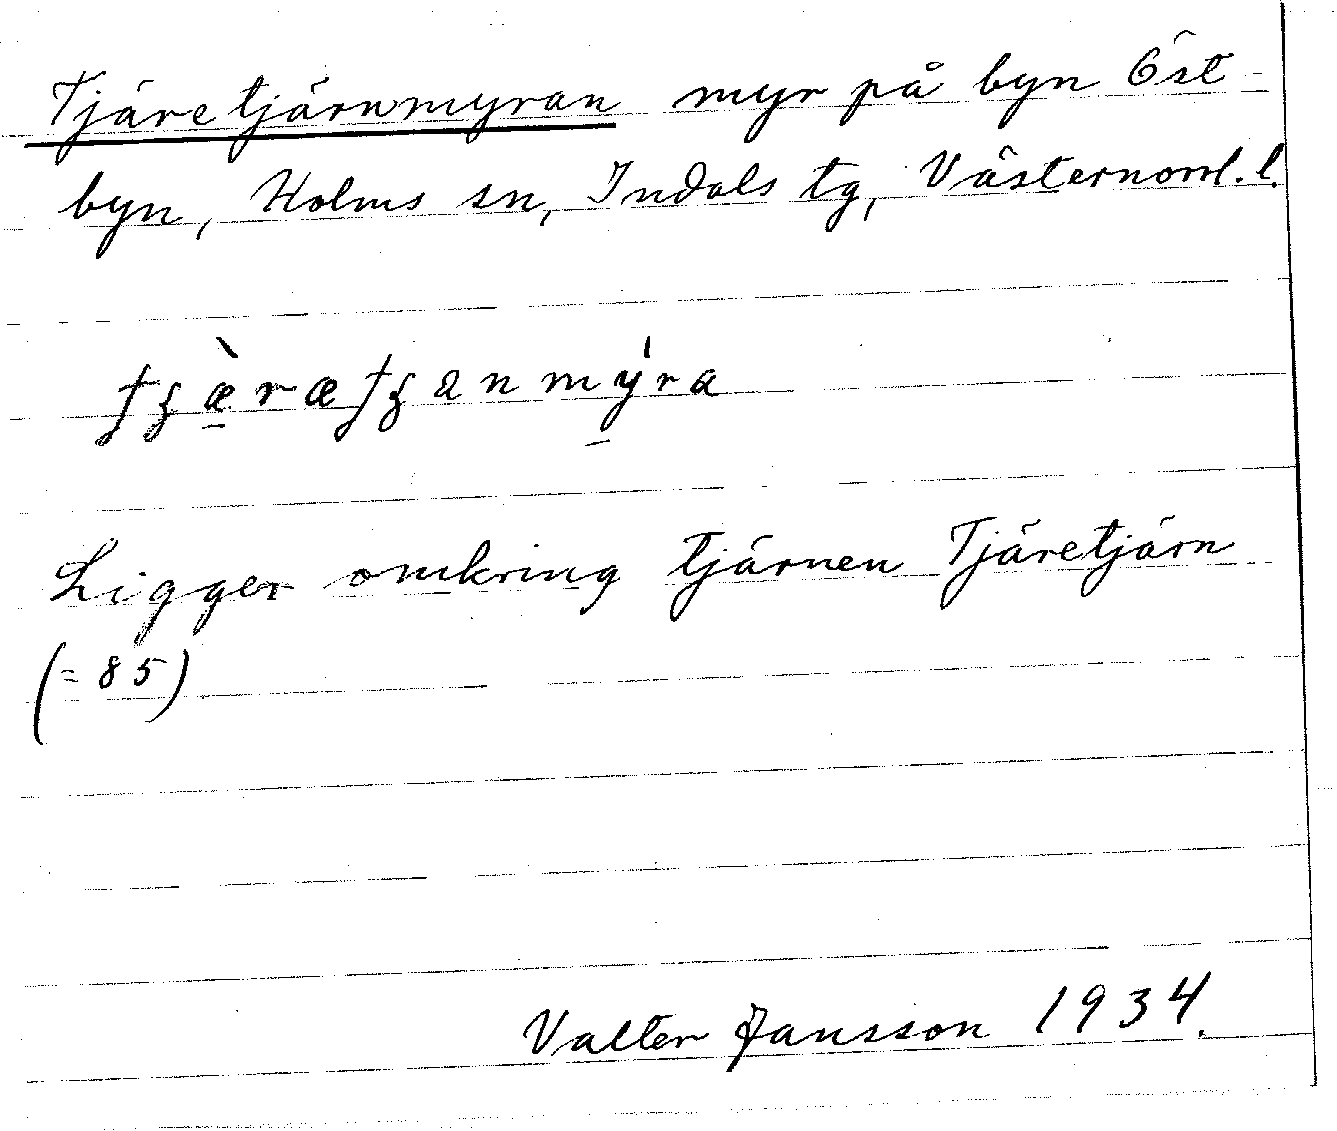 Tjäretjärnmyran myr på byn Öst-
byn, Holms sn, Indals tg, Västernorrl. l.
Ligger omkring tjärnen Tjäretjärn
(=85)
Valter Jansson 1934.